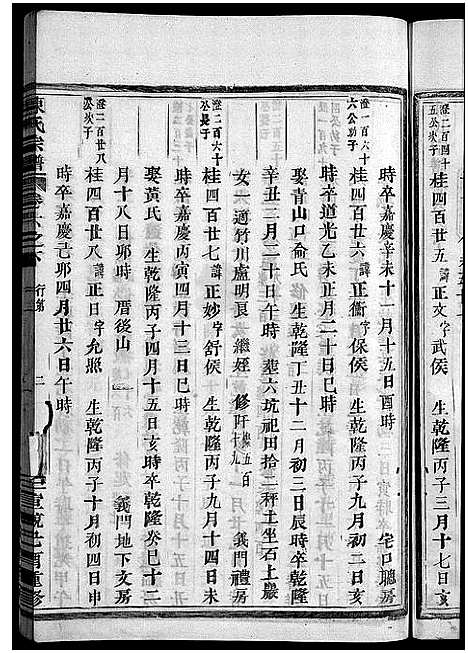 澄二百四十五公次子 桂四百廿五 諱正文字武侯 生乾隆丙子三月十七日亥
時卒嘉慶辛未十一月十五日酉時 宅口聽房
澄一百六十六公幼子 桂四百廿六 諱正衛字保侯 生乾隆丙子九月初二日亥
時卒道光乙未正月二十日巳時
娶青山口俞氏 生乾隆丁丑十二月初三日辰時卒乾隆
辛丑二月二十日午時 塟六坑祀田拾二秤土坐石上嚴
女一適竹川盧明良 女繼姪 修阡 總五百十九 義門禮房
澄二百六十公長子 桂四百廿七 諱正妙字舒侯 生乾隆丙子九月十四日未
時卒嘉慶丙寅四月十三日巳時
娶黃氏 生乾隆丙子四月十五日亥時卒乾隆癸巳十二
月十八日卯時 厝後山 義門地下文房
澄二百廿八公次子 桂四百廿八 諱正日字允照 生乾隆丙子十月初四日申
時卒嘉慶己卯四月廿六日午時
陳氏宗譜 卷六之下 行第 二 宣統己酉重修